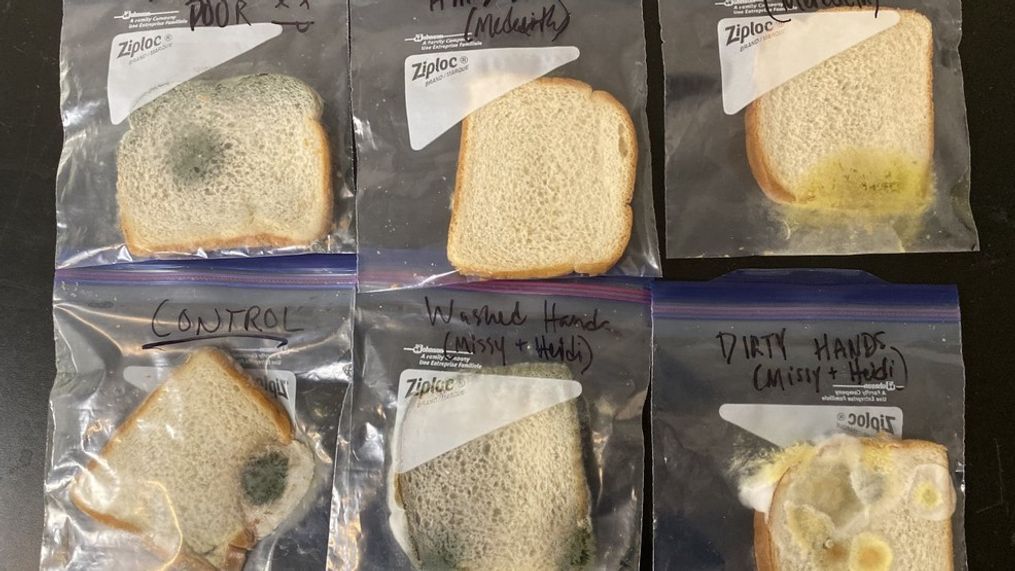 DOOR
Johnson
A Family Company
Une Entreprise Familiale
Ziploc®
BRAND / MARQUE
(Meredith)
Johnson
A Family Company
Une Entreprise Familiale
Ziploc®
BRAND / MARQUE
A Family Company
Une Entreprise Familiale
Ziploc®
BRAND / MARQUE
CONTROL
Ziploc®
Washed Hands
(Missy + Heidi)
Johnson
A Family Company
Une Entreprise Familiale
Ziploc®
BRAND / MARQUE
DIRTY HANDS
(Missy + Heidi)
Johnson
A Family Company
Une Entreprise Familiale
Ziploc®
BRAND / MARQUE